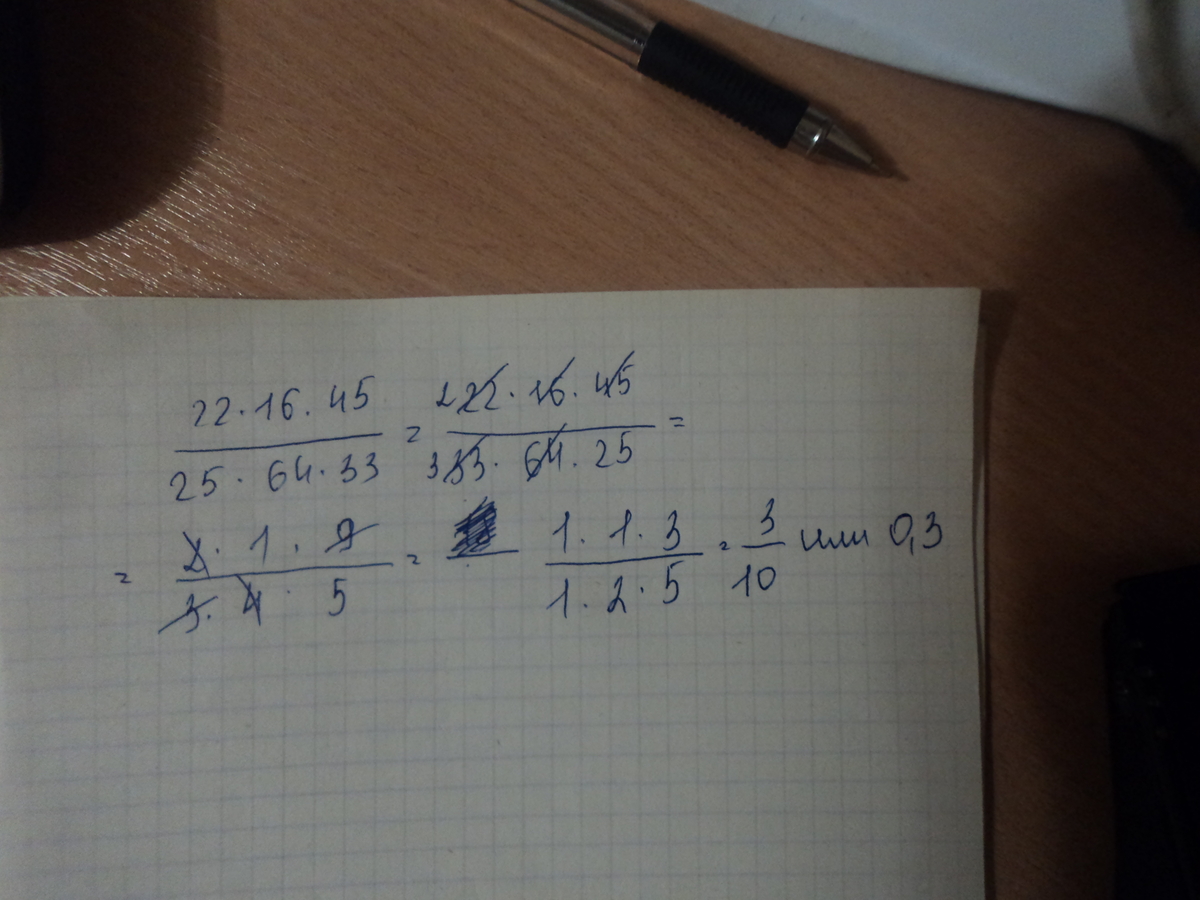 22·16·45 / 25·64·33 = 2 22·16·45 / 3 33·64·25 =
= 2·1·9 / 3·4·5 = 1·1·3 / 1·2·5 = 3 / 10 или 0,3